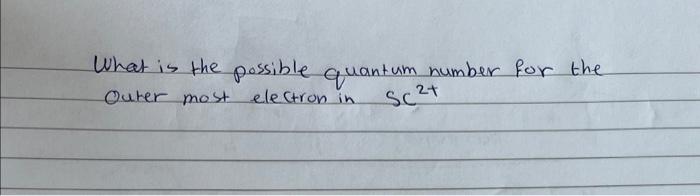 What is the possible quantum number for the
Outer most electron in Sc²⁺